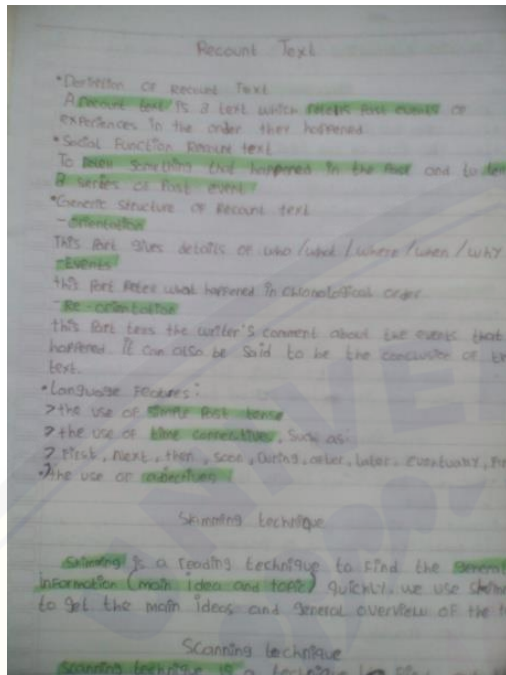 Recount Text
• Definition of Recount Text
A recount text is a text which retells past events or
experiences in the order they happened
• Social Function Recount text
To retell something that happened in the past and to
a series of past event
• Generic Structure of Recount text
- Orientation
This Part gives details of who / what / where / when / why
- Events
this Part Retell what happened in Chronological order.
- Re-orientation
this Part tells the writer's comment about the events that
happened. it can also be said to be the conclusion of
text.
• Language Features:
> the use of Simple Past tense
> the use of time connectives, such as:
> First, next, then, soon, during, after, later, eventually,
> The use of adjectives
Skimming technique
Skimming is a reading technique to find the general
information (main idea and topic) quickly. we use
to get the main ideas and general overview of the
Scanning technique
Scanning technique is a technique